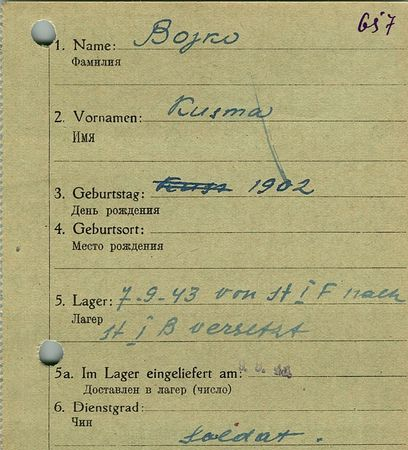 657
1. Name: Bojko
Фамилия
2. Vornamen: Kusma
Имя
3. Geburtstag: 1902
День рождения
4. Geburtsort:
Место рождения
5. Lager: 7.9.43 von St I F nach
Лагер
St I B versetzt
5a. Im Lager eingeliefert am:
Доставлен в лагер (число)
6. Dienstgrad:
Чин
Soldat.